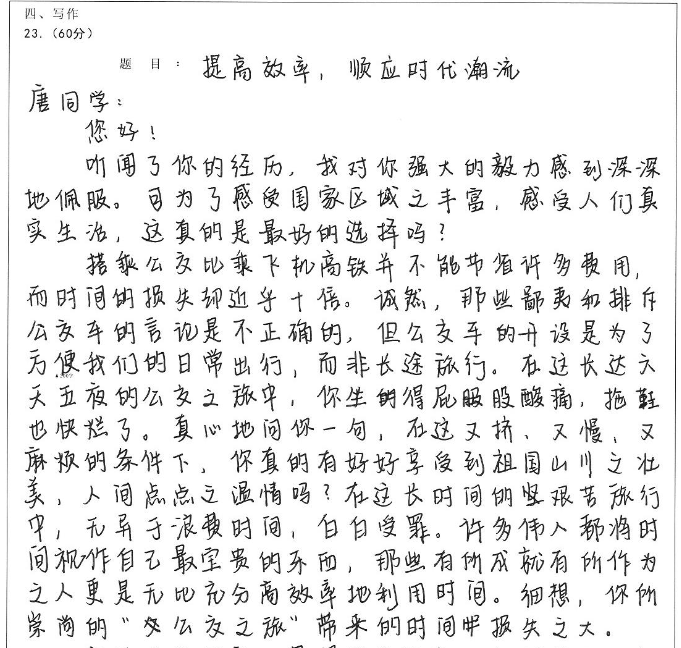 四、写作
23.（60分）
题 目： 提高效率，顺应时代潮流
唐同学：
您好！
听闻了你的经历，我对你强大的毅力感到深深
地佩服。可为了感受国家区域之丰富，感受人们真
实生活，这真的是最好的选择吗？
搭乘公交比乘飞机高铁并不能节省许多费用，
而时间的损失却近乎十倍。诚然，那些鄙夷和排斥
公交车的言论是不正确的，但公交车的开设是为了
方便我们的日常出行，而非长途旅行。在这长达六
天五夜的公交之旅中，你坐的得屁股酸痛，拖鞋
也快烂了。真心地问你一句，在这又挤、又慢、又
麻烦的条件下，你真的有好好享受到祖国山川之壮
美，人间点点之温情吗？在这长时间的艰苦旅行
中，无异于浪费时间，白白受罪。许多伟人都将时
间视作自己最宝贵的东西，那些有所成就有所作为
之人更是无比充分高效率地利用时间。细想，你所
崇尚的“公交之旅”带来的时间损失之大。